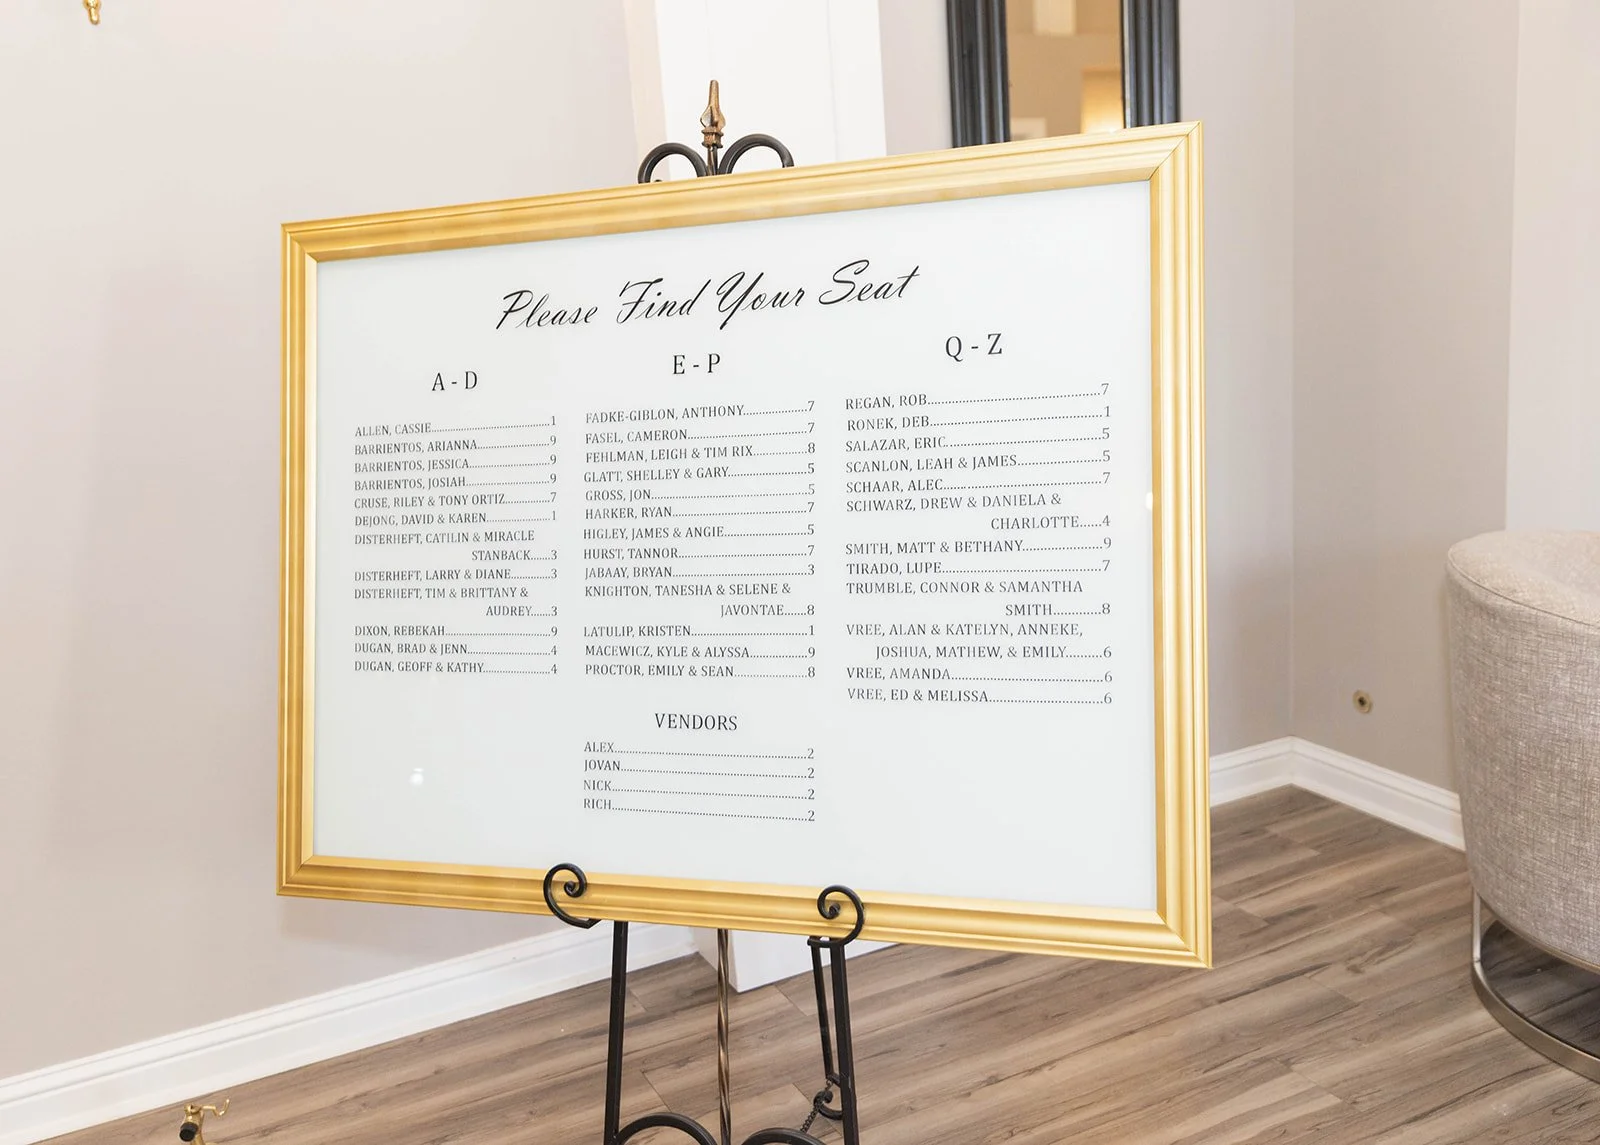 Please Find Your Seat
A - D
ALLEN, CASSIE...1
BARRIENTOS, ARIANNA...9
BARRIENTOS, JESSICA...9
BARRIENTOS, JOSIAH...9
CRUSE, RILEY & TONY ORTIZ...7
DEJONG, DAVID & KAREN...1
DISTERHEFT, CATILIN & MIRACLE
STANBACK...3
DISTERHEFT, LARRY & DIANE...3
DISTERHEFT, TIM & BRITTANY &
AUDREY...3
DIXON, REBEKAH...9
DUGAN, BRAD & JENN...4
DUGAN, GEOFF & KATHY...4
E - P
FADKE-GIBLON, ANTHONY...7
FASEL, CAMERON...7
FEHLMAN, LEIGH & TIM RIX...8
GLATT, SHELLEY & GARY...5
GROSS, JON...5
HARKER, RYAN...7
HIGLEY, JAMES & ANGIE...5
HURST, TANNOR...7
JABAAY, BRYAN...3
KNIGHTON, TANESHA & SELENE &
JAVONTAE...8
LATULIP, KRISTEN...1
MACEWICZ, KYLE & ALYSSA...9
PROCTOR, EMILY & SEAN...8
VENDORS
ALEX...2
JOVAN...2
NICK...2
RICH...2
Q - Z
REGAN, ROB...7
RONEK, DEB...1
SALAZAR, ERIC...5
SCANLON, LEAH & JAMES...5
SCHAAR, ALEC...7
SCHWARZ, DREW & DANIELA &
CHARLOTTE...4
SMITH, MATT & BETHANY...9
TIRADO, LUPE...7
TRUMBLE, CONNOR & SAMANTHA
SMITH...8
VREE, ALAN & KATELYN, ANNEKE,
JOSHUA, MATHEW, & EMILY...6
VREE, AMANDA...6
VREE, ED & MELISSA...6